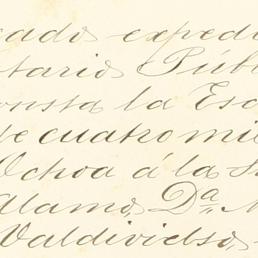 cado expedi
tario Públ
onsta la Esc
te cuatro mil
Ochoa á la S
Alamo, Da M
Valdivielso,